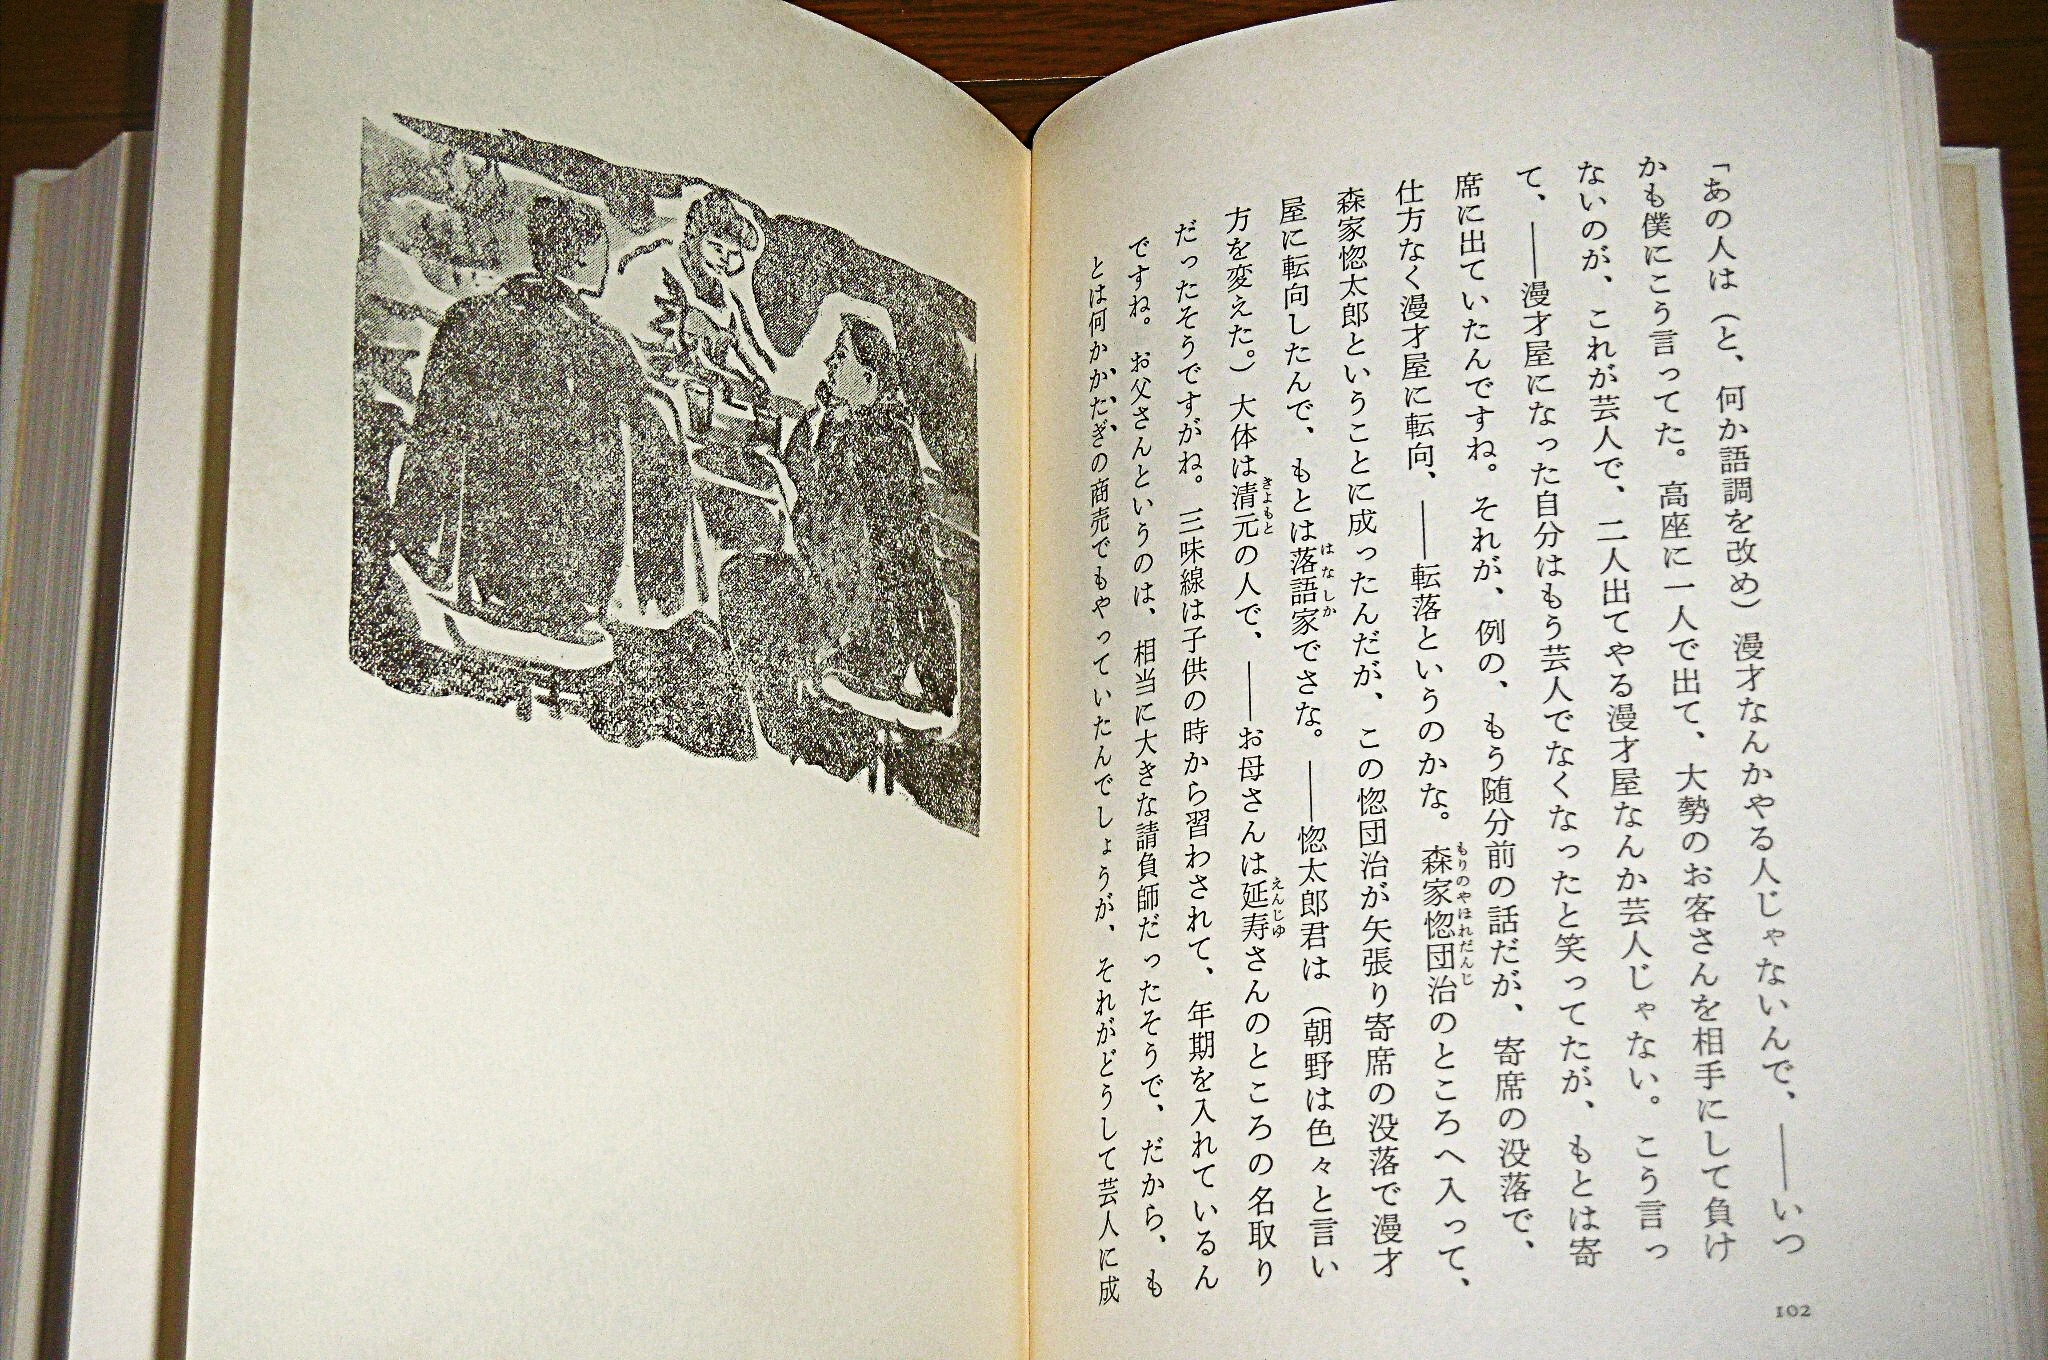 「あの人は（と、何か語調を改め）漫才なんかやる人じゃないんで、――いつ
かも僕にこう言ってた。高座に一人で出て、大勢のお客さんを相手にして負け
ないのが、これが芸人で、二人出てやる漫才屋なんか芸人じゃない。こう言っ
て、――漫才屋になった自分はもう芸人でなくなったと笑ってたが、もとは寄
席に出ていたんですね。それが、例の、もう随分前の話だが、寄席の没落で、
仕方なく漫才屋に転向、――転落というのかな。森家惚団治のところへ入って、
もりのやほれだんじ
森家惚太郎ということに成ったんだが、この惚団治が矢張り寄席の没落で漫才
屋に転向したんで、もとは落語家でさな。――惚太郎君は（朝野は色々と言い
はなしか
方を変えた。）大体は清元の人で、――お母さんは延寿さんのところの名取り
きよもと
えんじゆ
だったそうですがね。三味線は子供の時から習わされて、年期を入れているん
ですね。お父さんというのは、相当に大きな請負師だったそうで、だから、も
とは何かかたぎの商売でもやっていたんでしょうが、それがどうして芸人に成
102